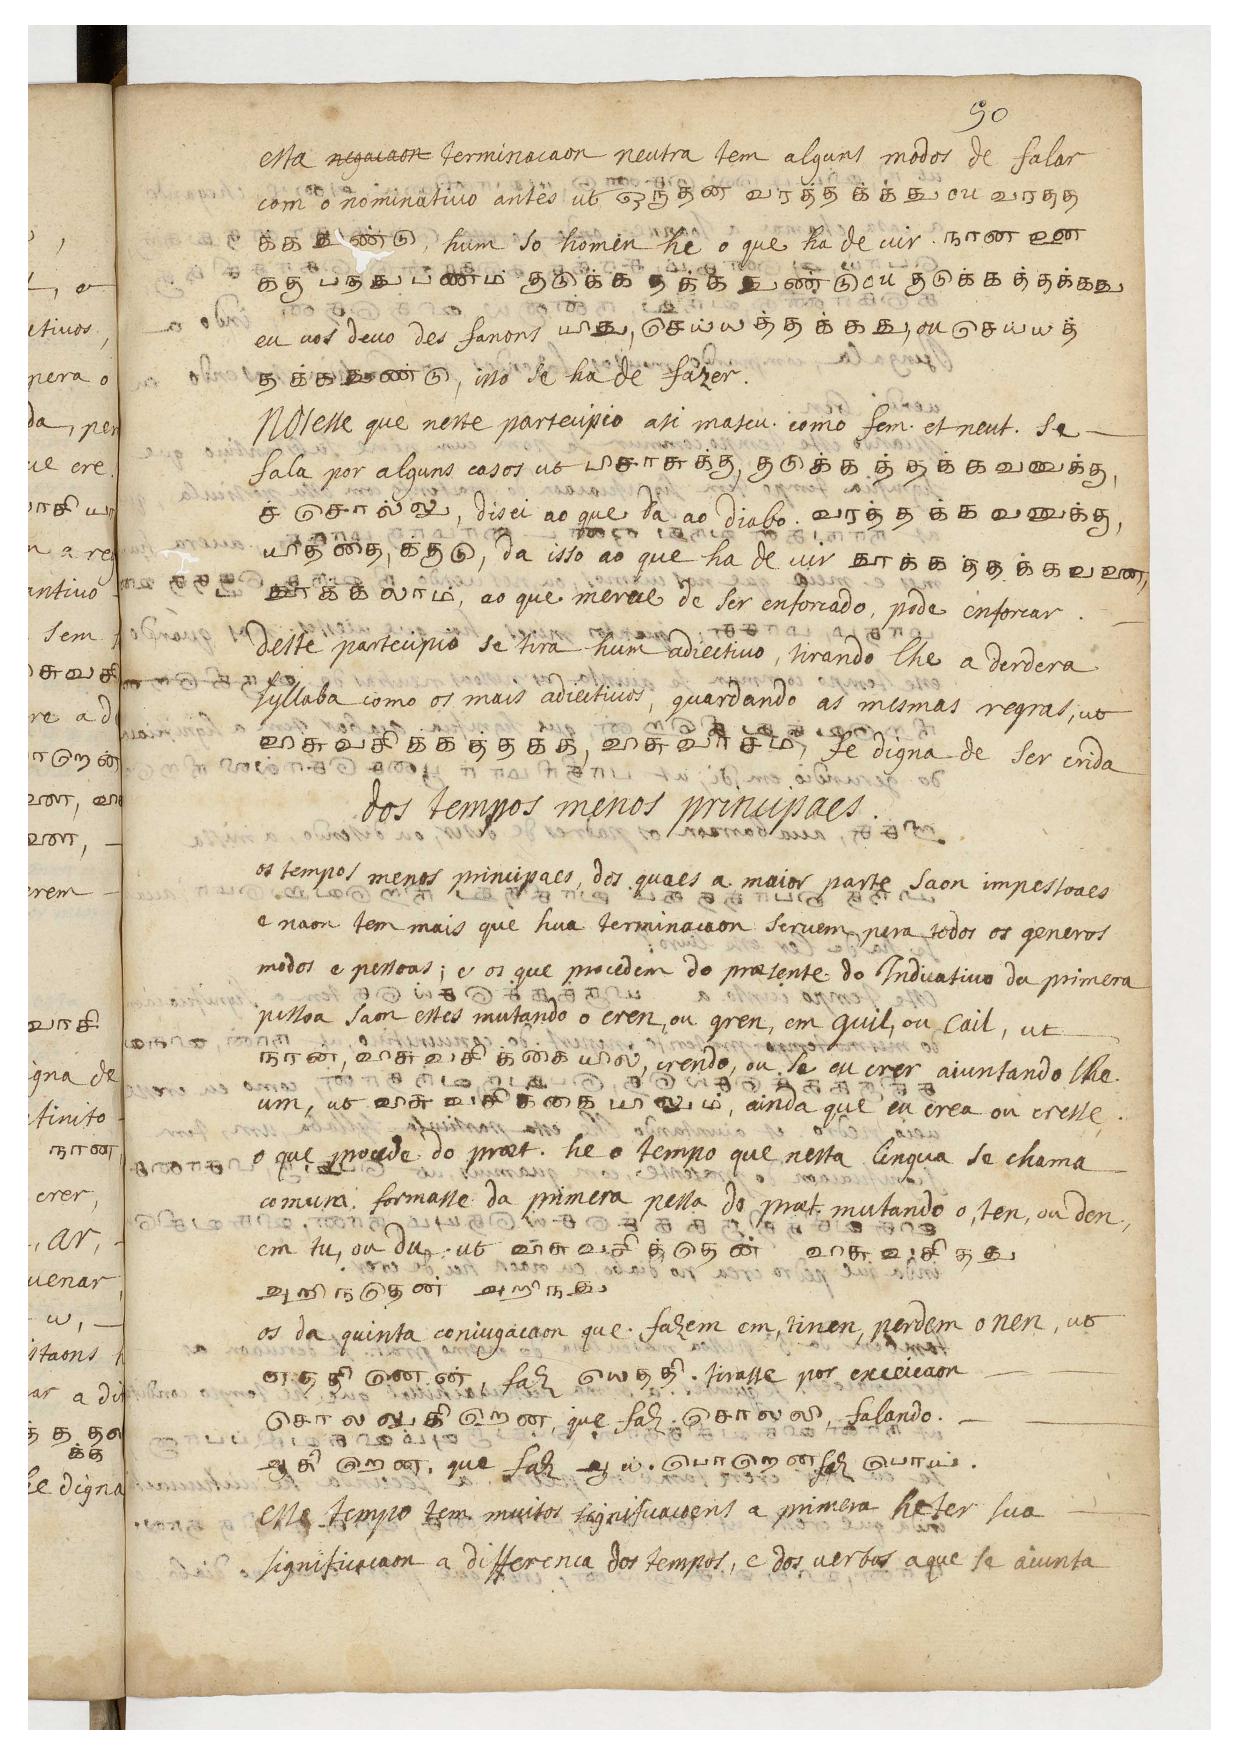 90
esta negacaon terminacaon neutra tem alguns modos de falar
com o nominativo antes ut ஒநதன வரத்தக்க்கது ou வரதத
க்கதுண்டு, hum so homen he o que ha de uir. நான உன
கது பதது பணம் தடுக்க தக்க துண்டு ou தடுக்கத்தக்கது
eu uos deuo des fanons யிது, செய்யத்தக்கது, ou செய்யத்
தக்கதுண்டு, isto se ha de fazer.
Notesse que neste partecipio asi mascu. como fem. et neut. se
fala por alguns casos ut பிசாசுக்கு, தடுக்கத்தக்கவனுக்கு,
சொல்லு, disei ao que da ao diabo. வரத்தக்கவனுக்கு,
யித்தை, கதுடு, da isso ao que ha de uir தூக்கத்தக்கவன,
தூக்கலாம், ao que merece de ser enforcado, pode enforcar.
deste partecipio se tira hum adiectiuo, tirando lhe a derdera
syllaba como os mais adiectiuos, guardando as mesmas regras, ut
விசுவசிக்கத்தக்க, விசுவாசம், fe digna de ser crida
dos tempos menos principaes.
os tempos menos principaes, dos quaes a maior parte saon impessoaes
e naon tem mais que hua terminacaon seruem pera todos os generos
modos e pessoas; e os que procedem do præsente do Indicatiuo da primera
pessoa saon estes mutando o eren, ou qren, em quil, ou cail, ut
நான, விசுவசிக்கையில, crendo, ou se eu crer aiuntando lhe
um, ut விசுவசிக்கையிலும், ainda que eu crea ou cresse.
o que procede do præt. he o tempo que nesta lingua se chama
comum. formasse da primera pessa do præt. mutando o, ten, ou den,
em tu, ou du, ut விசுவசித்தென் விசுவசிதது
அறிநதென் அறிநது
os da quinta coniugacaon que fazem em, tinen, perdem o nen, ut
எததினென், faz யெததி. tirasse por exceicaon
சொலலுகிறென, que faz சொலலி, falando.
ஆகிறென, que faz ஆய். பொறென faz பொய்.
este tempo tem muitos significacoens a primera he ter sua
significacaon a differenca dos tempos, e dos uerbos a que se aiunta